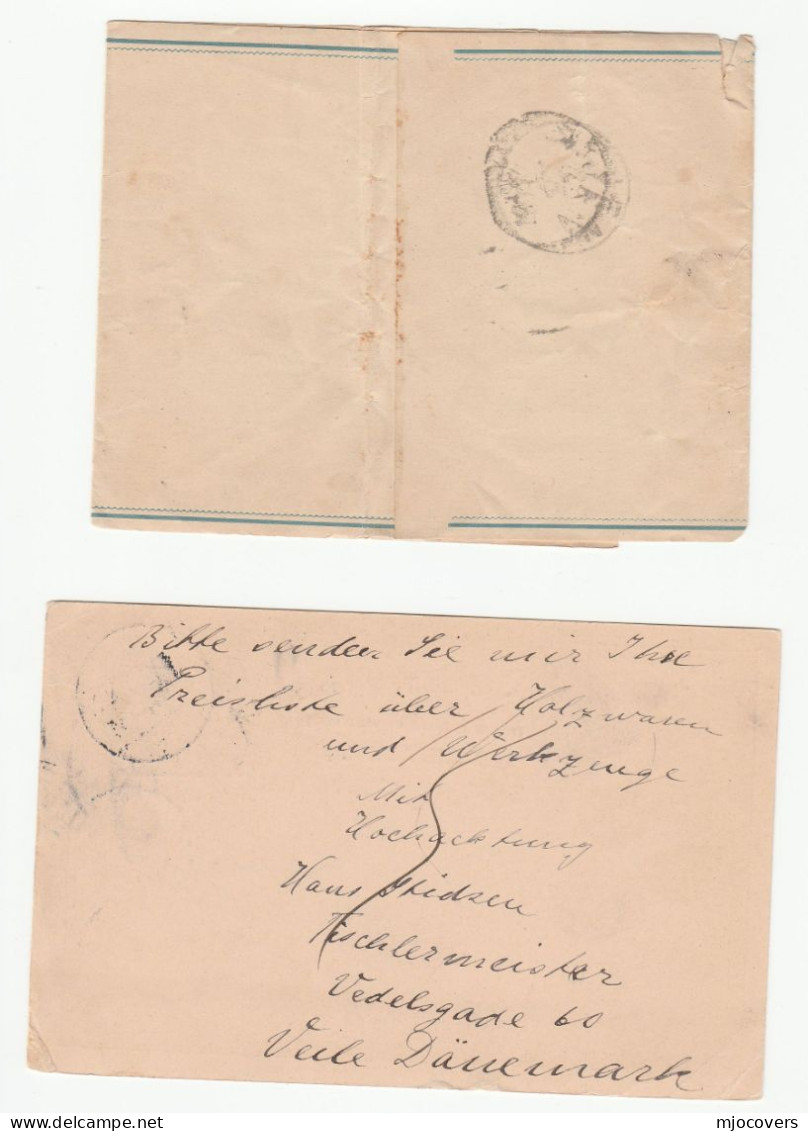 Bitte senden Sie mir Ihre
Preisliste über Holzwaren
und Werkzeuge
Mit
Hochachtung
Hans Stidsen
Tischlermeister
Vedelsgade 60
Veile Dänemark
mjocovers